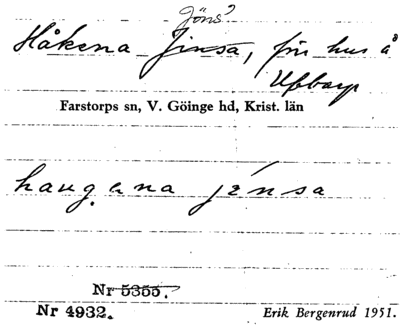 Jöns?
Håkena Jinsa, för hus å
Ubbarp
Farstorps sn, V. Göinge hd, Krist. län
haugena jénsa
Nr 5355.
Nr 4932.
Erik Bergenrud 1951.